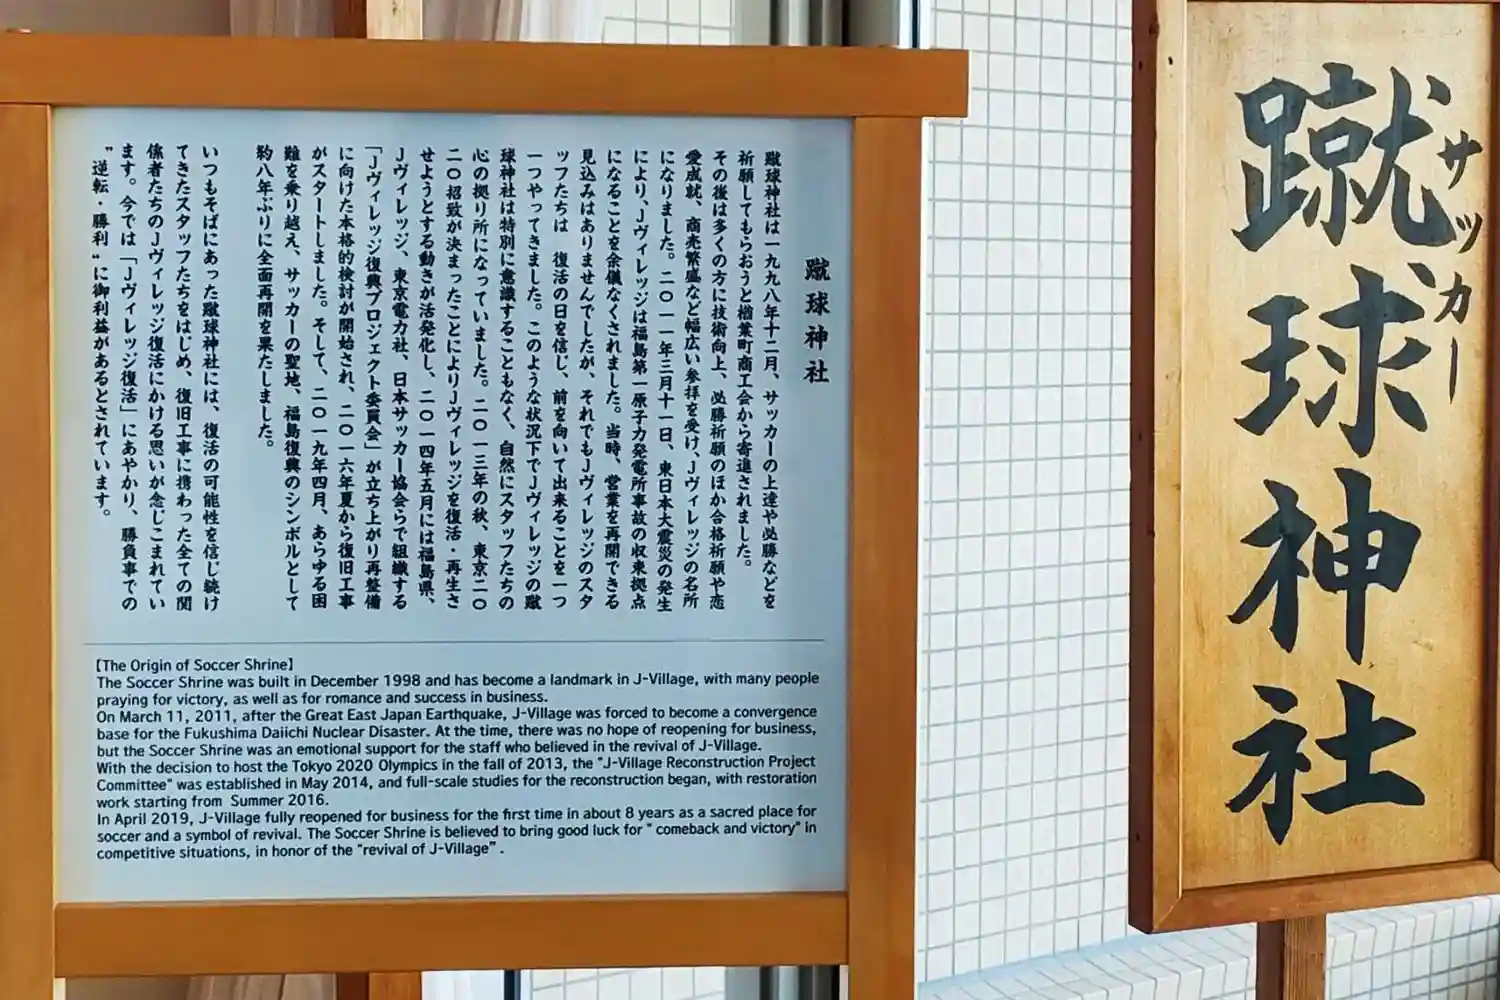 蹴球神社
サッカー
蹴球神社
蹴球神社は一九九八年十二月、サッカーの上達や必勝などを
祈願してもらおうと楢葉町商工会から寄進されました。
その後は多くの方に技術向上、必勝祈願のほか合格祈願や恋
愛成就、商売繁盛など幅広い参拝を受け、Jヴィレッジの名所
になりました。二〇一一年三月十一日、東日本大震災の発生
により、Jヴィレッジは福島第一原子力発電所事故の収束拠点
になることを余儀なくされました。当時、営業を再開できる
見込みはありませんでしたが、それでもJヴィレッジのスタ
ッフたちは 復活の日を信じ、前を向いて出来ることを一つ
一つやってきました。このような状況下でJヴィレッジの蹴
球神社は特別に意識することもなく、自然にスタッフたちの
心の拠り所になっていました。二〇一三年の秋、東京二〇
二〇招致が決まったことによりJヴィレッジを復活・再生さ
せようとする動きが活発化し、二〇一四年五月には福島県、
Jヴィレッジ、東京電力社、日本サッカー協会らで組織する
「Jヴィレッジ復興プロジェクト委員会」が立ち上がり再整備
に向けた本格的検討が開始され、二〇一六年夏から復旧工事
がスタートしました。そして、二〇一九年四月、あらゆる困
難を乗り越え、サッカーの聖地、福島復興のシンボルとして
約八年ぶりに全面再開を果たしました。
いつもそばにあった蹴球神社には、復活の可能性を信じ続け
てきたスタッフたちをはじめ、復旧工事に携わった全ての関
係者たちのJヴィレッジ復活にかける思いが念じこまれてい
ます。今では「Jヴィレッジ復活」にあやかり、勝負事での
"逆転・勝利"に御利益があるとされています。
【The Origin of Soccer Shrine】
The Soccer Shrine was built in December 1998 and has become a landmark in J-Village, with many people
praying for victory, as well as for romance and success in business.
On March 11, 2011, after the Great East Japan Earthquake, J-Village was forced to become a convergence
base for the Fukushima Daiichi Nuclear Disaster. At the time, there was no hope of reopening for business,
but the Soccer Shrine was an emotional support for the staff who believed in the revival of J-Village.
With the decision to host the Tokyo 2020 Olympics in the fall of 2013, the "J-Village Reconstruction Project
Committee" was established in May 2014, and full-scale studies for the reconstruction began, with restoration
work starting from Summer 2016.
In April 2019, J-Village fully reopened for business for the first time in about 8 years as a sacred place for
soccer and a symbol of revival. The Soccer Shrine is believed to bring good luck for " comeback and victory" in
competitive situations, in honor of the "revival of J-Village".